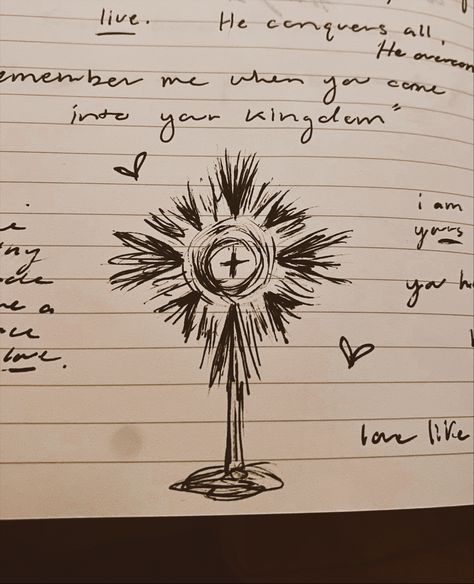 live. He conquers all,
He overcom
emember me when you come
into your kingdom"
i am
yours
love.
love like